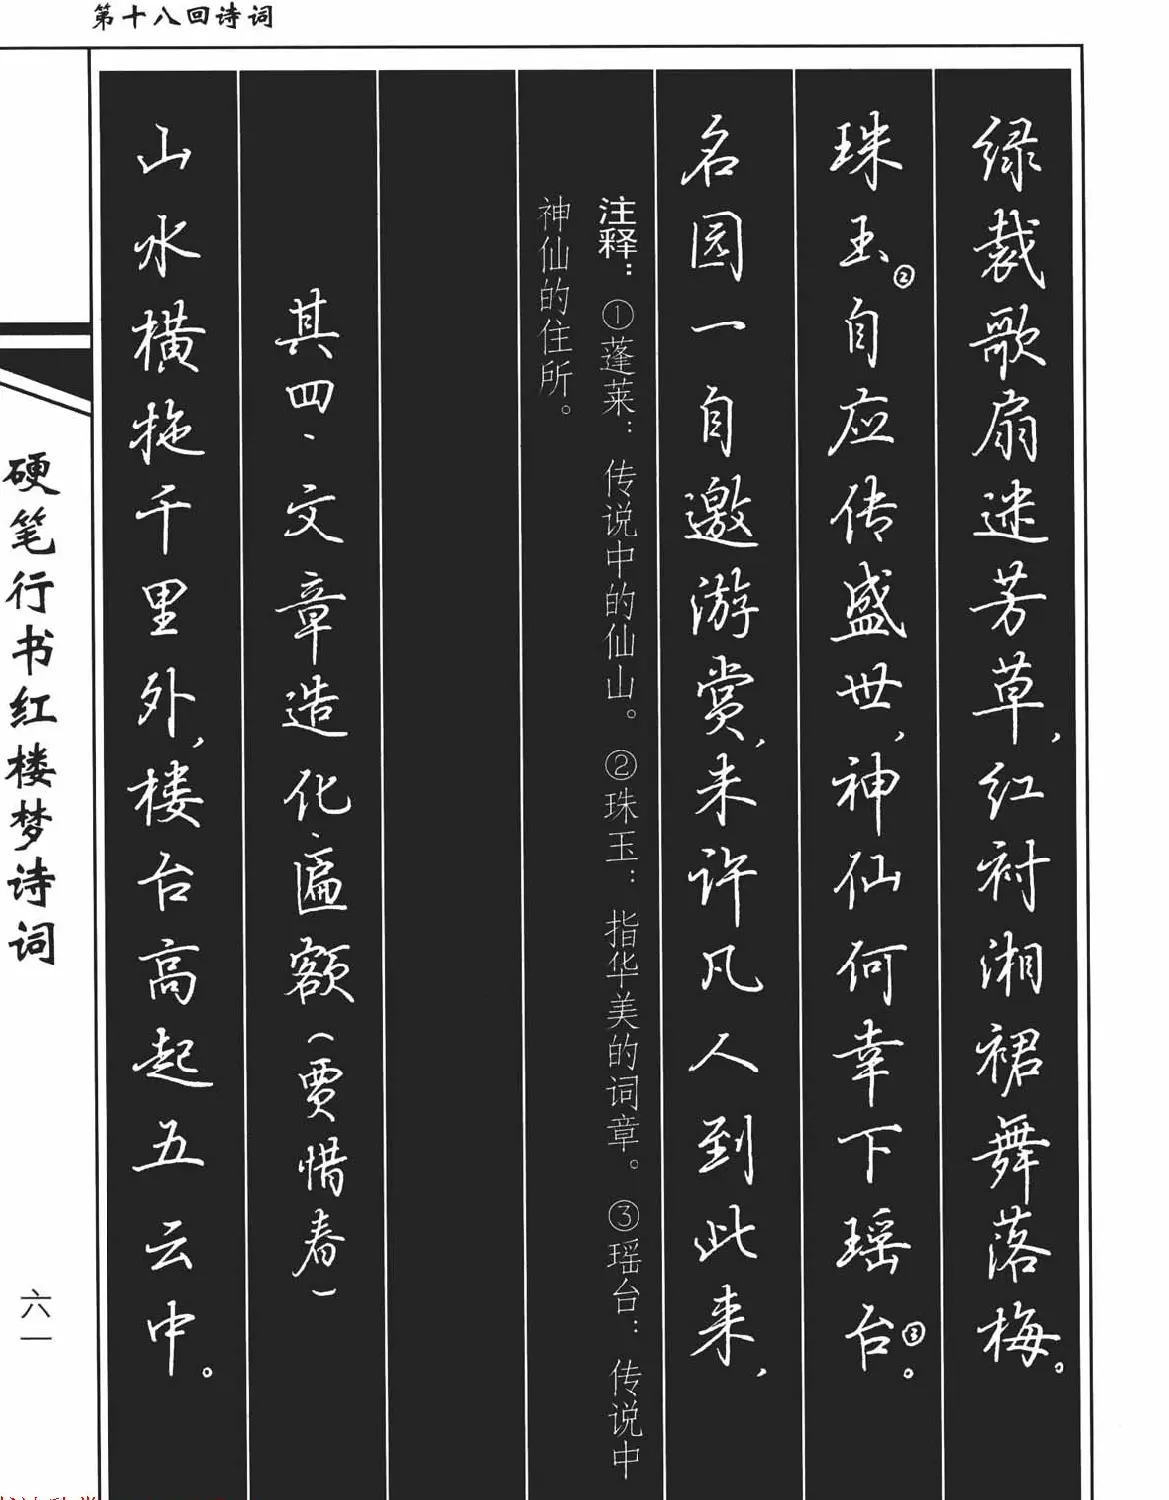 第十八回诗词
绿裁歌扇迷芳草，红衬湘裙舞落梅。
珠玉②自应传盛世，神仙何幸下瑶台③。
名园一自邀游赏，未许凡人到此来，
注释：①蓬莱：传说中的仙山。②珠玉：指华美的词章。③瑶台：传说中
神仙的住所。
其四、文章造化、匾额（贾惜春）
山水横拖千里外，楼台高起五云中。
硬笔行书红楼梦诗词
六一